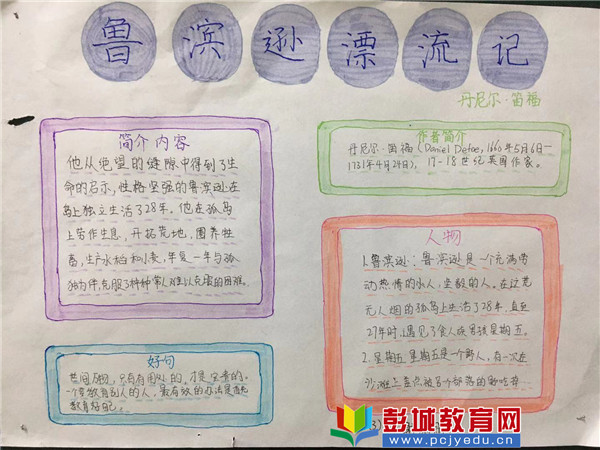 鲁滨逊漂流记
丹尼尔·笛福
简介内容
他从绝望的缝隙中得到了生
命的启示，性格坚强的鲁滨逊在
岛上独立生活了28年。他在孤岛
上劳作生息，开拓荒地，圈养牲
畜，生产水稻和小麦，年复一年与孤
独为伴，克服了种种常人难以克服的困难.
好句
世间万物，只有有用处的，才是宝贵的。
一个学教育别人的人，最有效的办法是先
教育好自己。
作者简介
丹尼尔·笛福（Daniel Defoe，1660年5月6日—
1731年4月24日），17-18世纪英国作家。
人物
1.鲁滨逊：鲁滨逊是一个充满劳
动热情的人，坚毅的人，在这荒
无人烟的孤岛上生活了28年，直至
27年时，遇见了食人族
2.星期五 星期五是一个野人，有一次在
沙滩上差点被另外部落的
彭城教育网
www.pcjyedu.cn